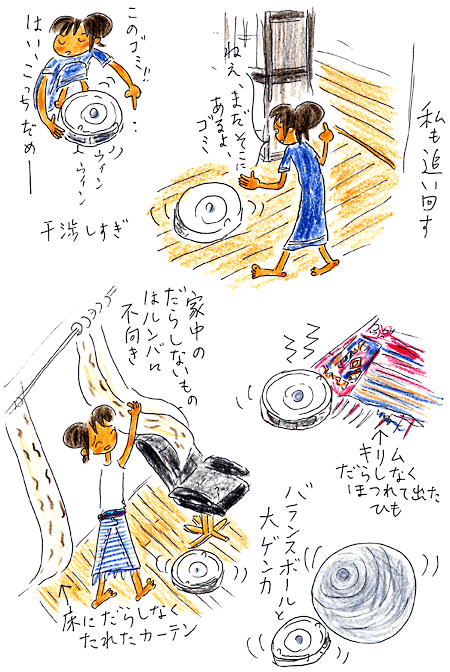 私も追い回す
ねぇ、まだそこに
あるよ、
ゴミ
このゴミ!!
はい、こっちだめー
ウィン
ウィーン
干渉しすぎ
家中の
だらしないもの
はルンバに
不向き
↑
キリム
だらしなく
ほつれて出た
ひも
↑
床にだらしなく
たれたカーテン
バランスボールと
大ゲンカ